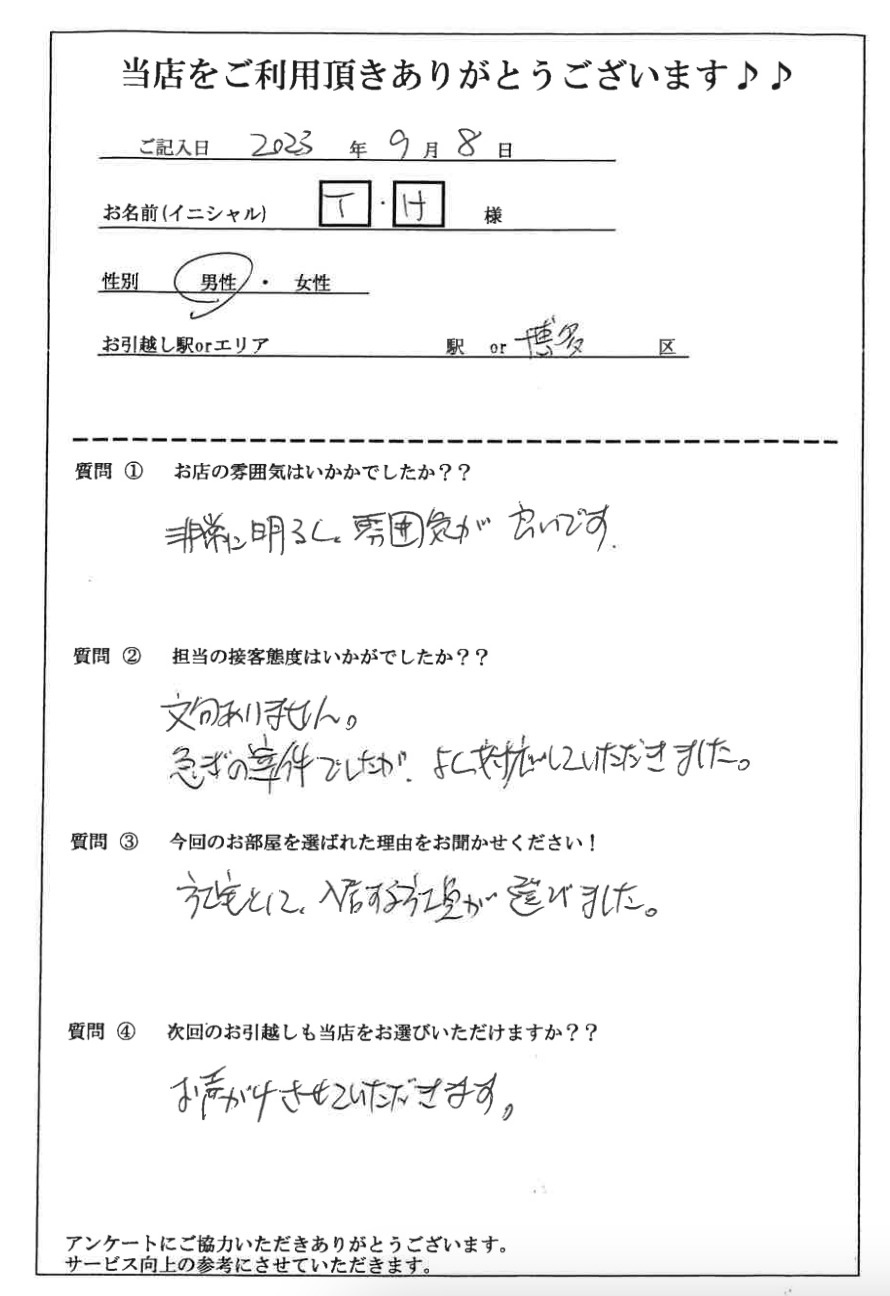 当店をご利用頂きありがとうございます♪♪
ご記入日 2023 年 9 月 8 日
お名前(イニシャル) T・H 様
性別 男性 ・ 女性
お引越し駅orエリア 駅 or 博多 区
質問 ① お店の雰囲気はいかかでしたか？？
非常に明るく、雰囲気が良いです.
質問 ② 担当の接客態度はいかがでしたか？？
文句ありません。
急ぎの案件でしたが、よく対応していただきました。
質問 ③ 今回のお部屋を選ばれた理由をお聞かせください！
入居する が 選びました。
質問 ④ 次回のお引越しも当店をお選びいただけますか？？
お声がけさせていただきます。
アンケートにご協力いただきありがとうございます。
サービス向上の参考にさせていただきます。